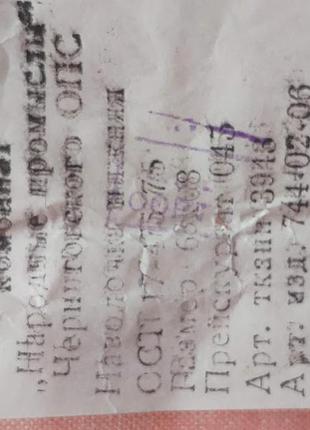 комбинат
„Народные промыслы"
Черниговского ОПС
Наволочка нижняя
ОСТ 17-
Размер
Прейскурант 045
Арт. ткани 3948
Арт. изд. 744-02-06